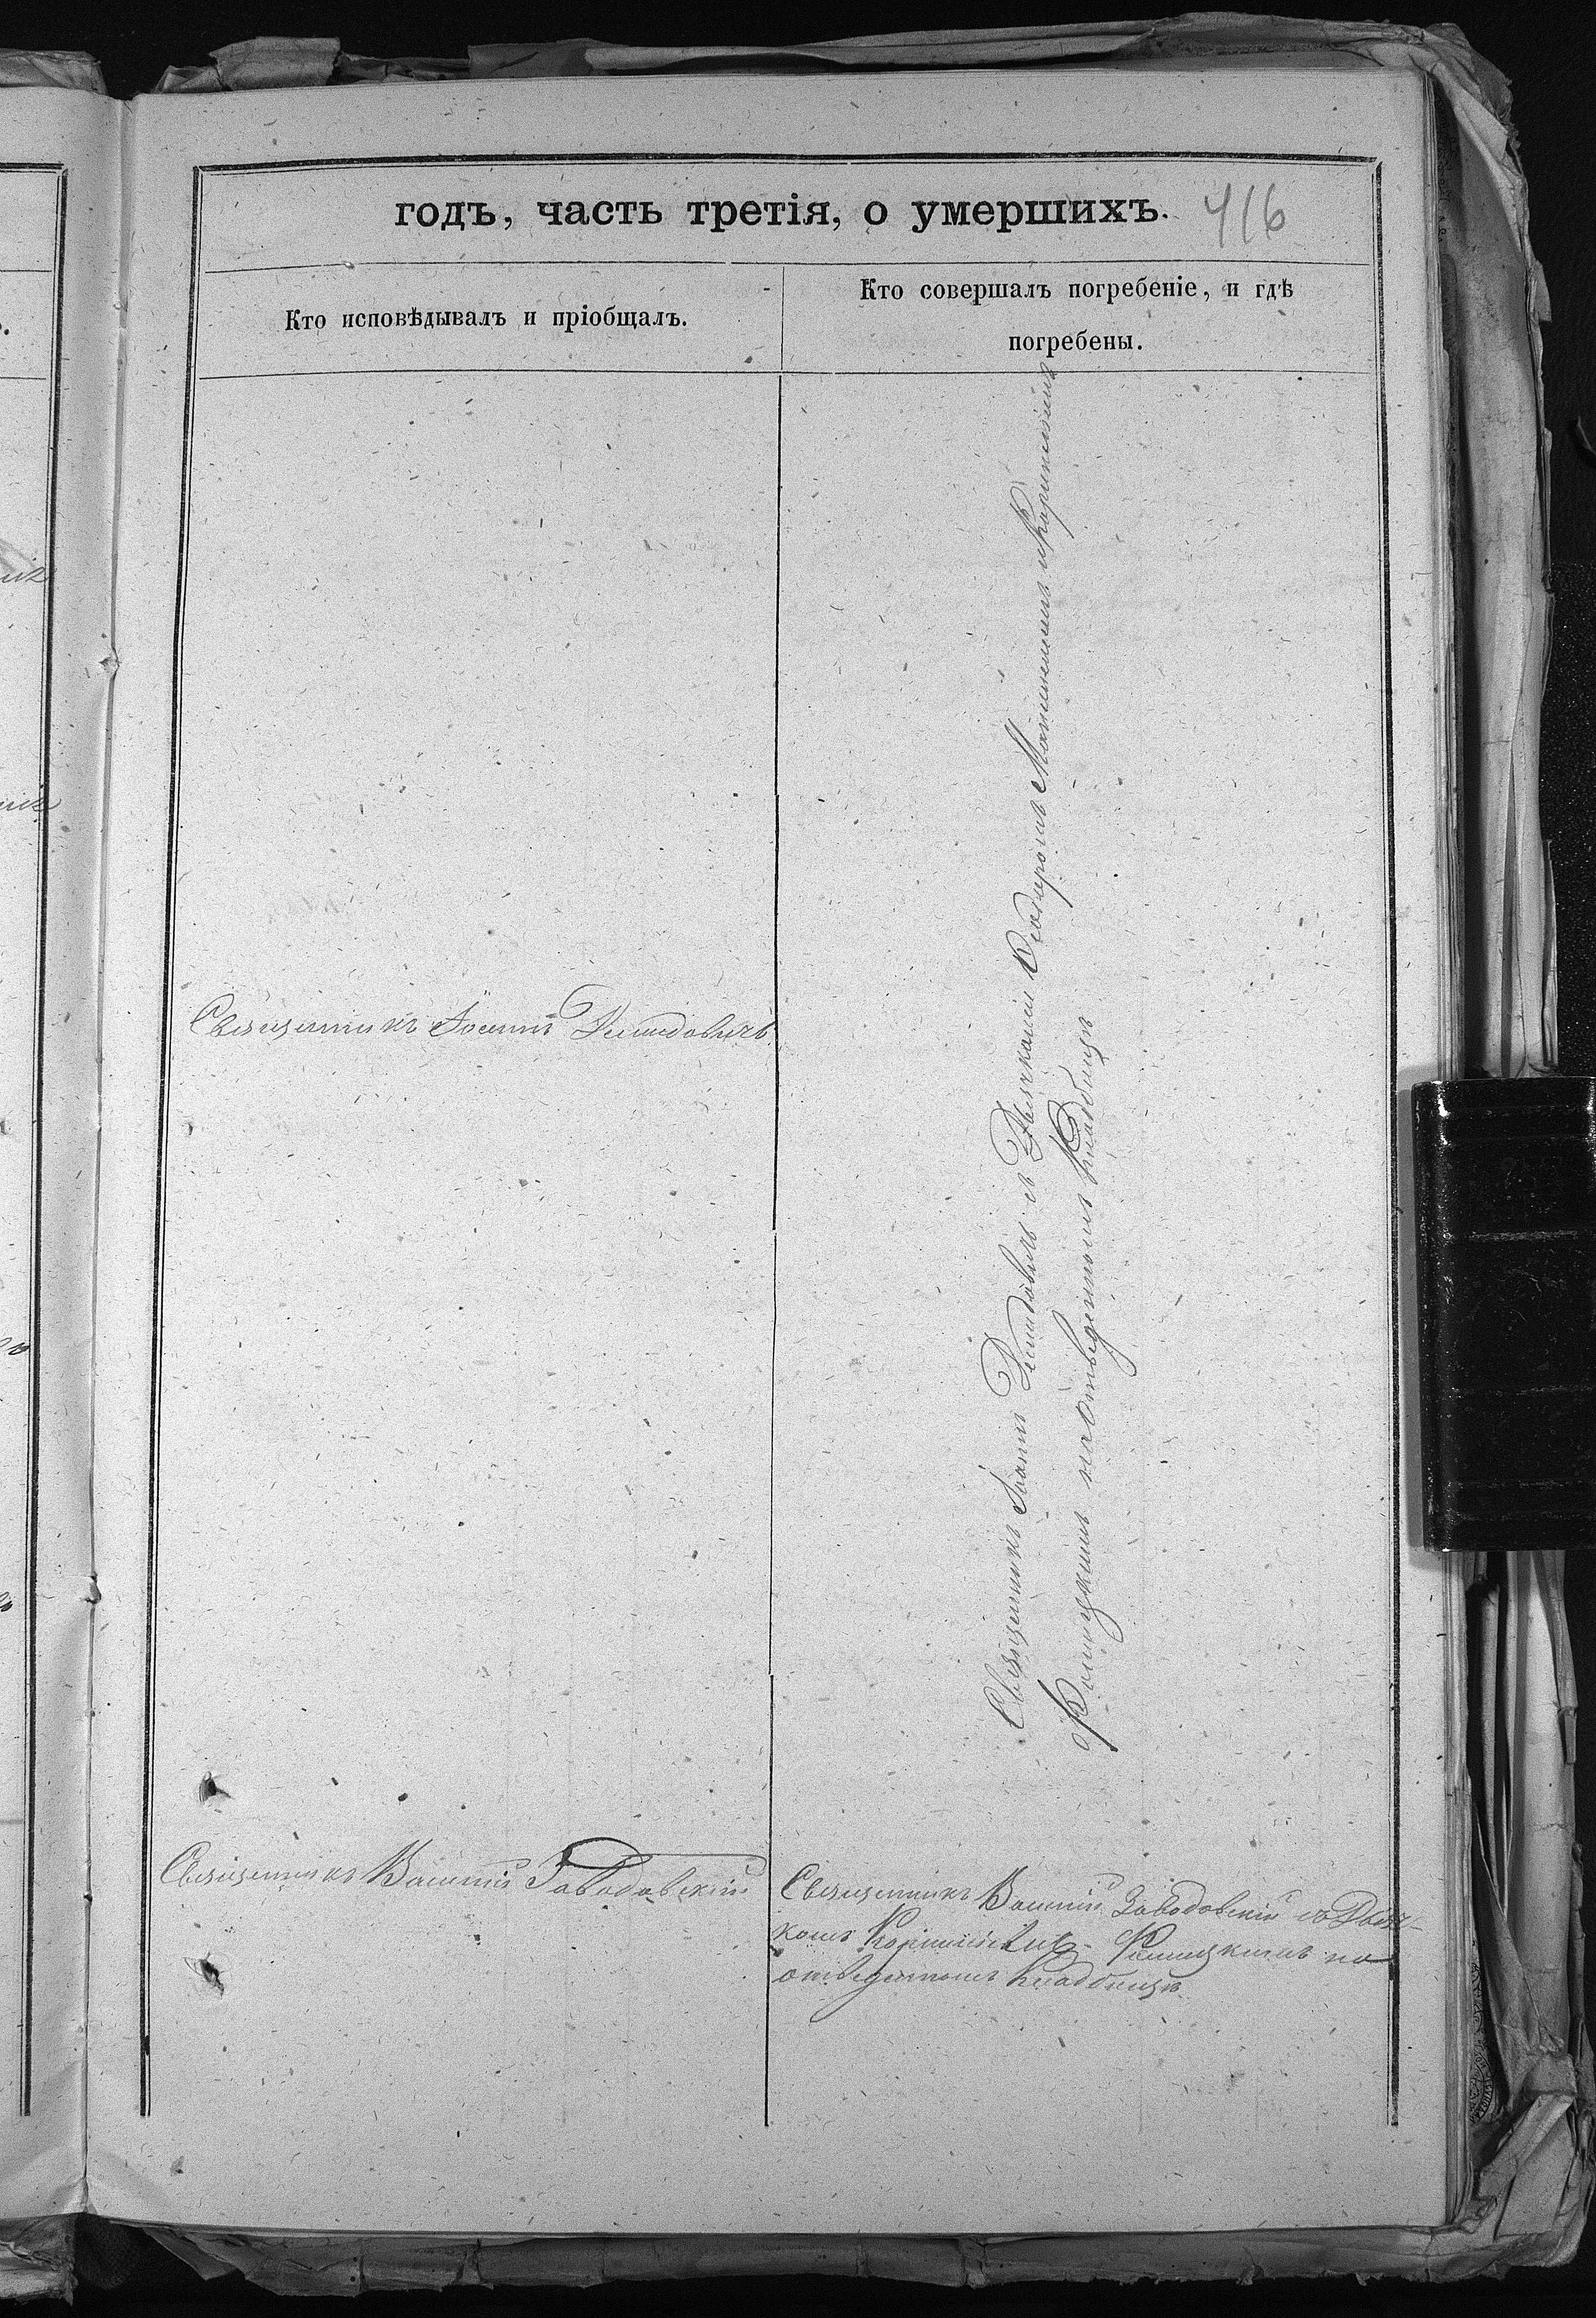 годъ, часть третія, о умершихъ. 416
Кто исповѣдывалъ и пріобщалъ.
Кто совершалъ погребеніе, и гдѣ
погребены.
Священникъ Іоаннъ Демидовичъ
Священникъ Іоаннъ Демидовичъ съ Дьячкомъ
на отведенномъ Кладбищѣ
Священникъ Василій Заводовскій
Священникъ Василій Заводовскій съ Дьяч-
комъ на
отведенномъ Кладбищѣ